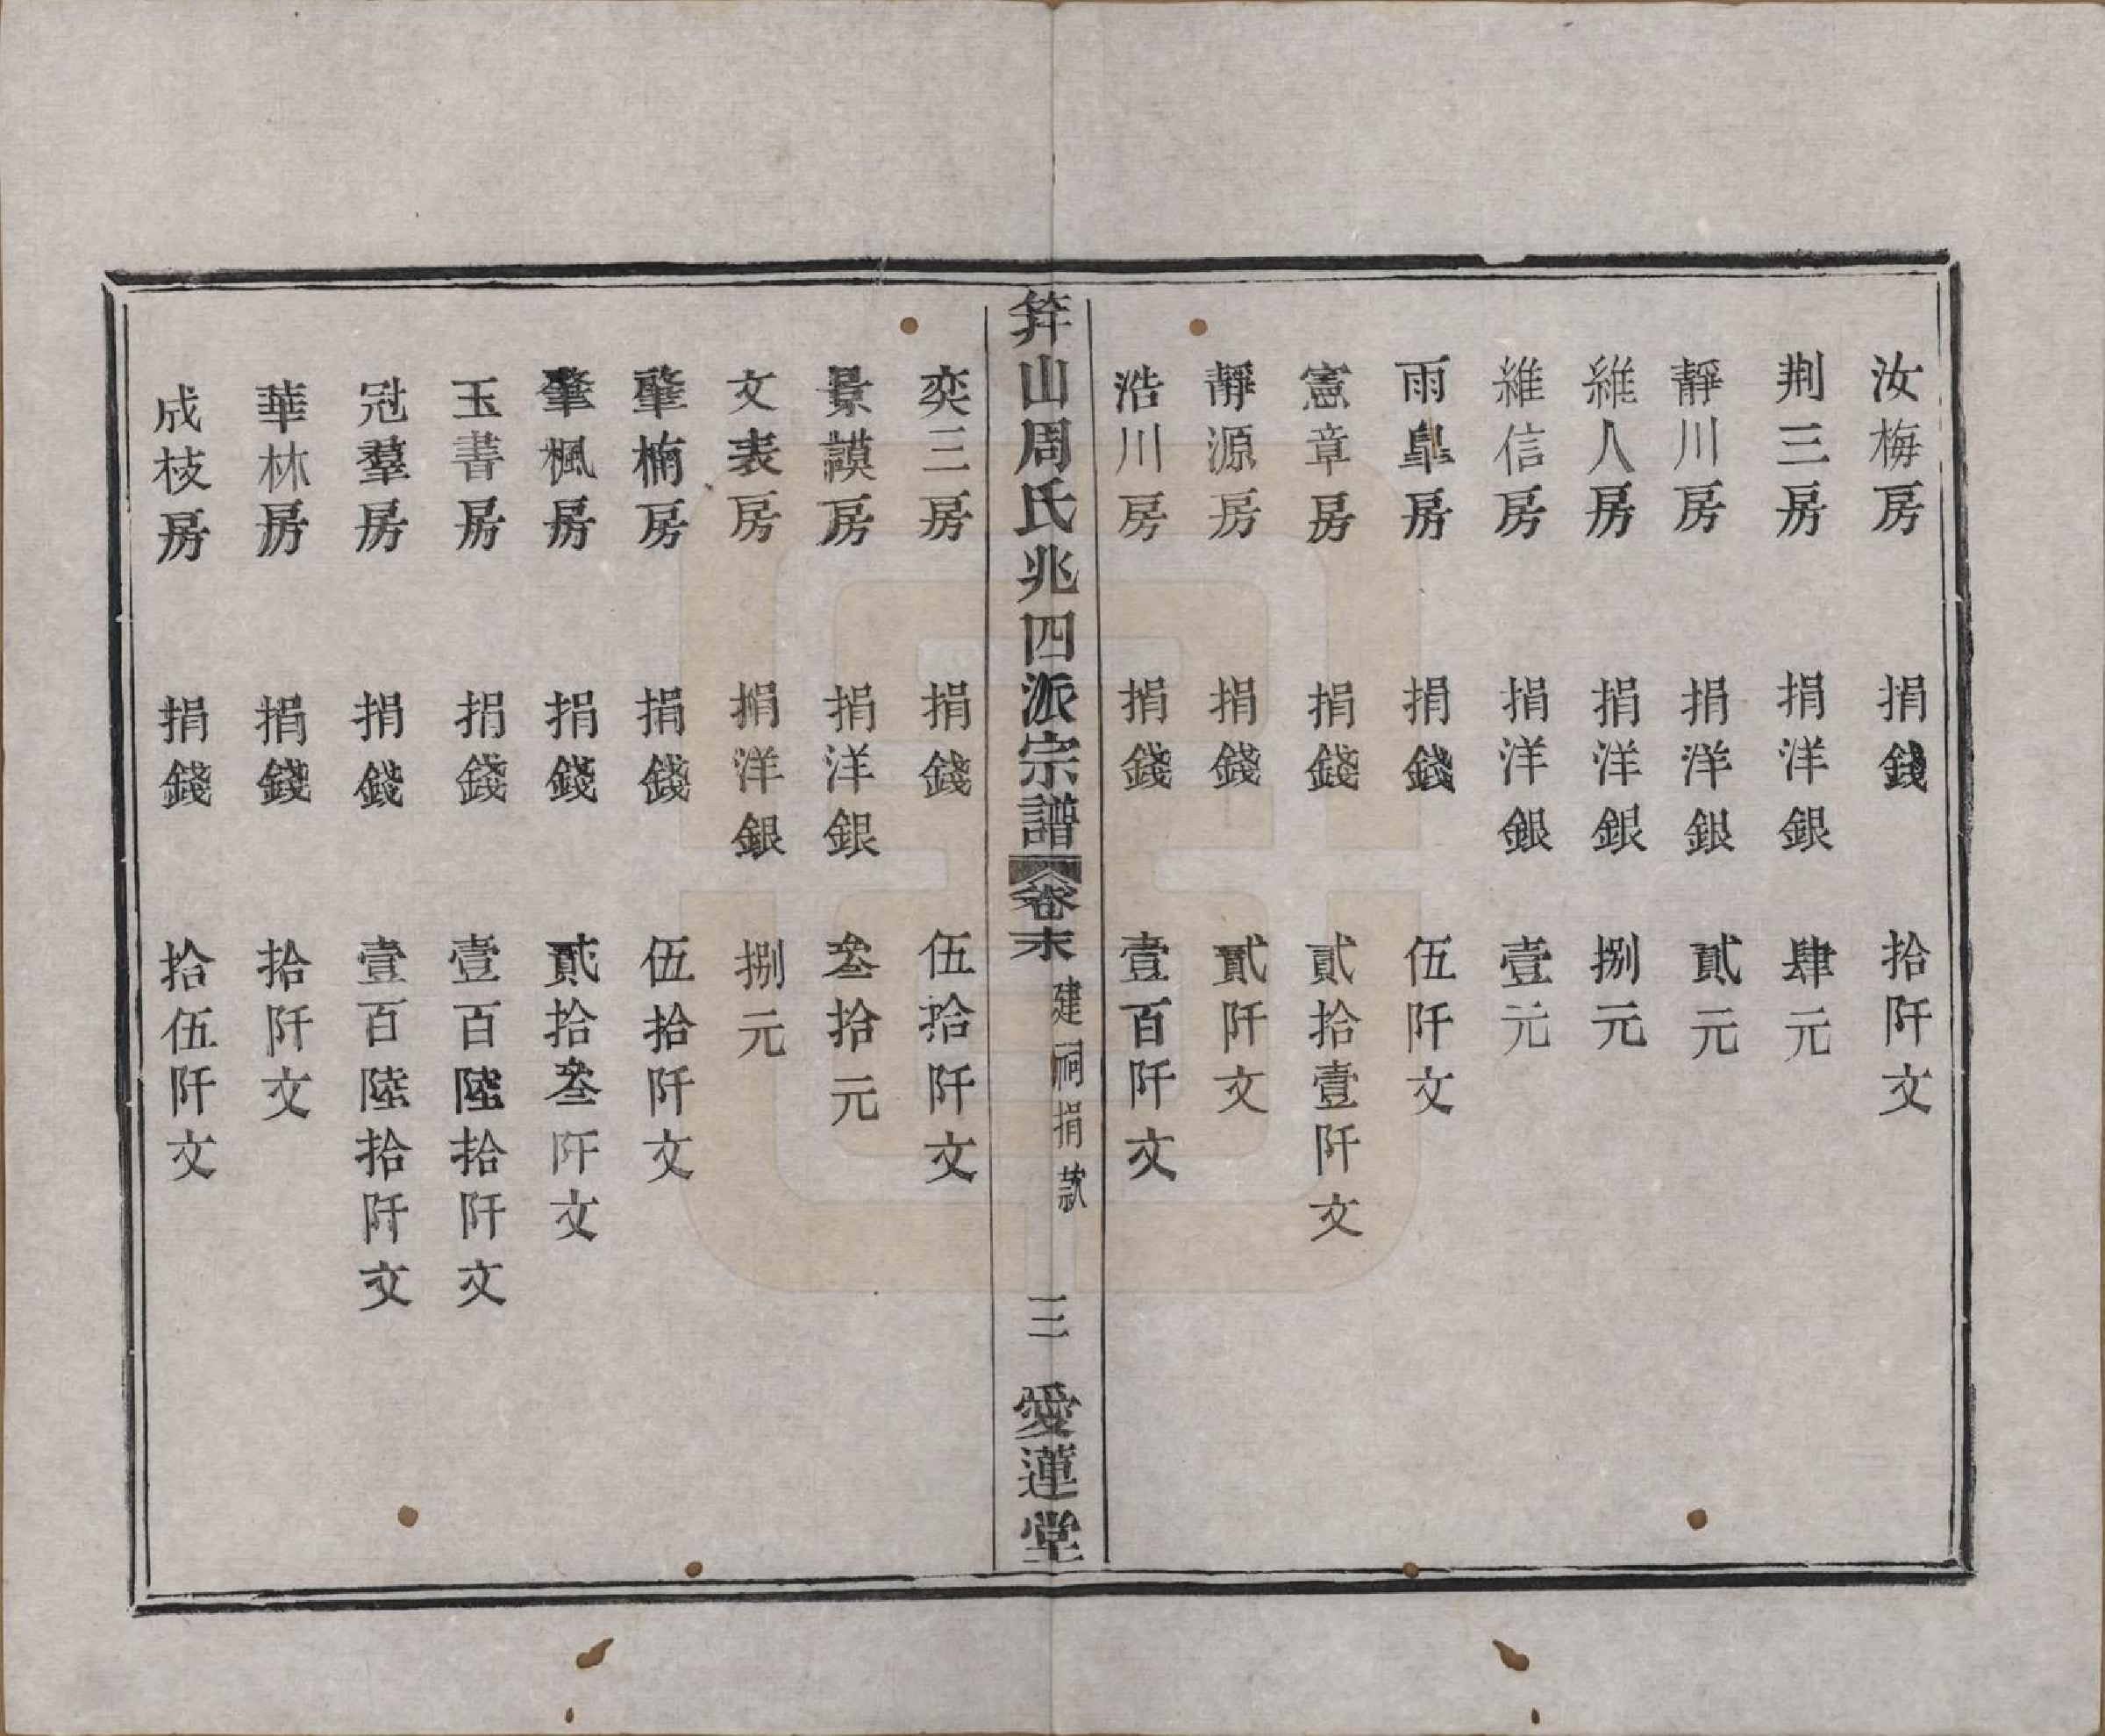 汝梅房 捐錢 拾阡文
荆三房 捐洋銀 肆元
靜川房 捐洋銀 貳元
維人房 捐洋銀 捌元
維信房 捐洋銀 壹元
雨皐房 捐錢 伍阡文
憲章房 捐錢 貳拾壹阡文
靜源房 捐錢 貳阡文
浩川房 捐錢 壹百阡文
筓山周氏兆四派宗譜 卷末 建祠捐款 三 愛蓮堂
奕三房 捐錢 伍拾阡文
景謨房 捐洋銀 叁拾元
文表房 捐洋銀 捌元
肇楠房 捐錢 伍拾阡文
肇楓房 捐錢 貳拾叁阡文
玉書房 捐錢 壹百陸拾阡文
冠羣房 捐錢 壹百陸拾阡文
華林房 捐錢 拾阡文
成枝房 捐錢 拾伍阡文